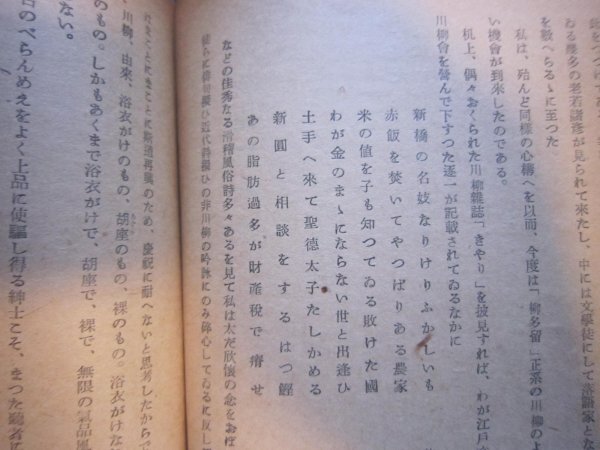 ゐる幾多の老若諸彥が見られて來たし、中には文學徒にして落語家とな
を數へらるゝに至つた
私は、殆んど同樣の心構へを以而、今度は「柳多留」正系の川柳のよ
い機會が到來したのである。
机上、偶々おくられた川柳雜誌「きやり」を披見すれば、わが江戸
川柳會を營んで下すつた逐一が記載されてゐるなかに
新橋の名妓なりけりふかしいも
赤飯を焚いてやつぱりある農家
米の値を子も知つてゐる敗けた國
わが金のまゝにならない世と出逢ひ
土手へ來て聖德太子たしかめる
新圓と相談をするはつ鰹
あの脂肪過多が財產稅で瘠せ
などの佳秀なる滑稽風俗詩多々あるを見て私は太だ欣懷の念をおぼ
徒らに俳句擬ひ近代詩擬ひの非川柳の吟詠にのみ碎心してゐるに反し
はまことにまことに斯道再興のため、慶祝に耐へないと思考したからで
川柳、由來、浴衣がけのもの、胡座のもの、裸のもの。浴衣がけな
のもの。しかもあくまで浴衣がけで、胡座で、裸で、無限の氣品
ない。
のべらんめえをよく上品に使驅し得る紳士こそ、まつた